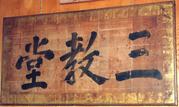 三教堂